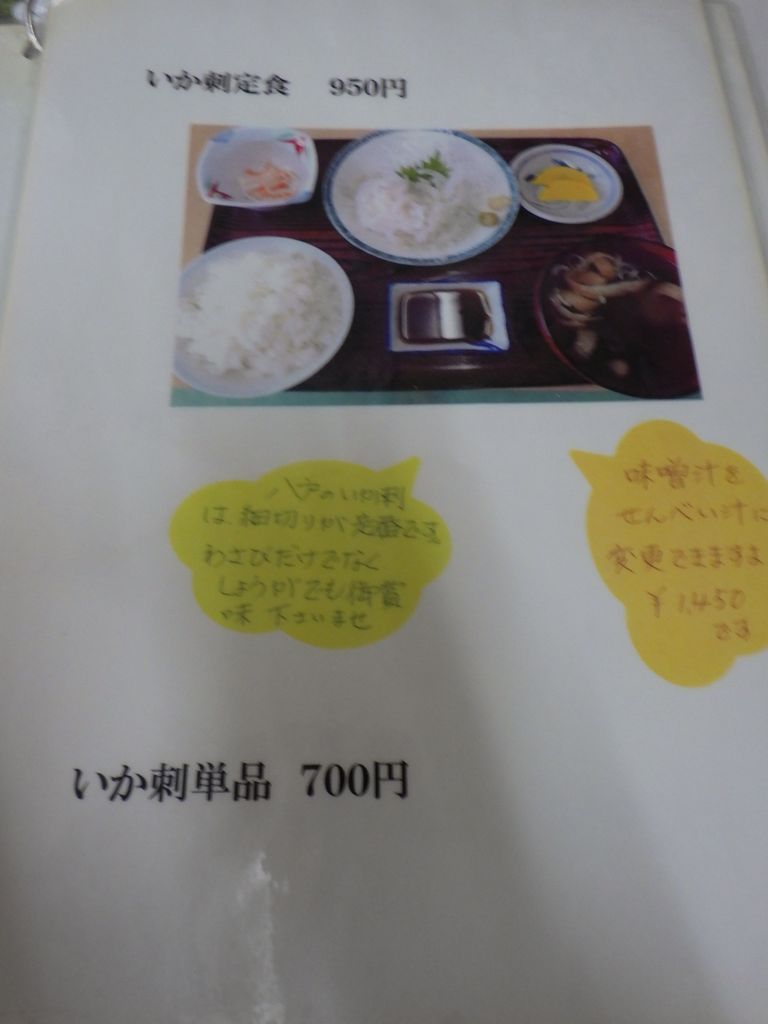 いか刺定食 950円
八戸のいか刺
は、細切りが定番です。
わさびだけでなく
しょうがでも御賞
味下さいませ
味噌汁を
せんべい汁に
変更できますよ
¥1,450
です
いか刺単品 700円